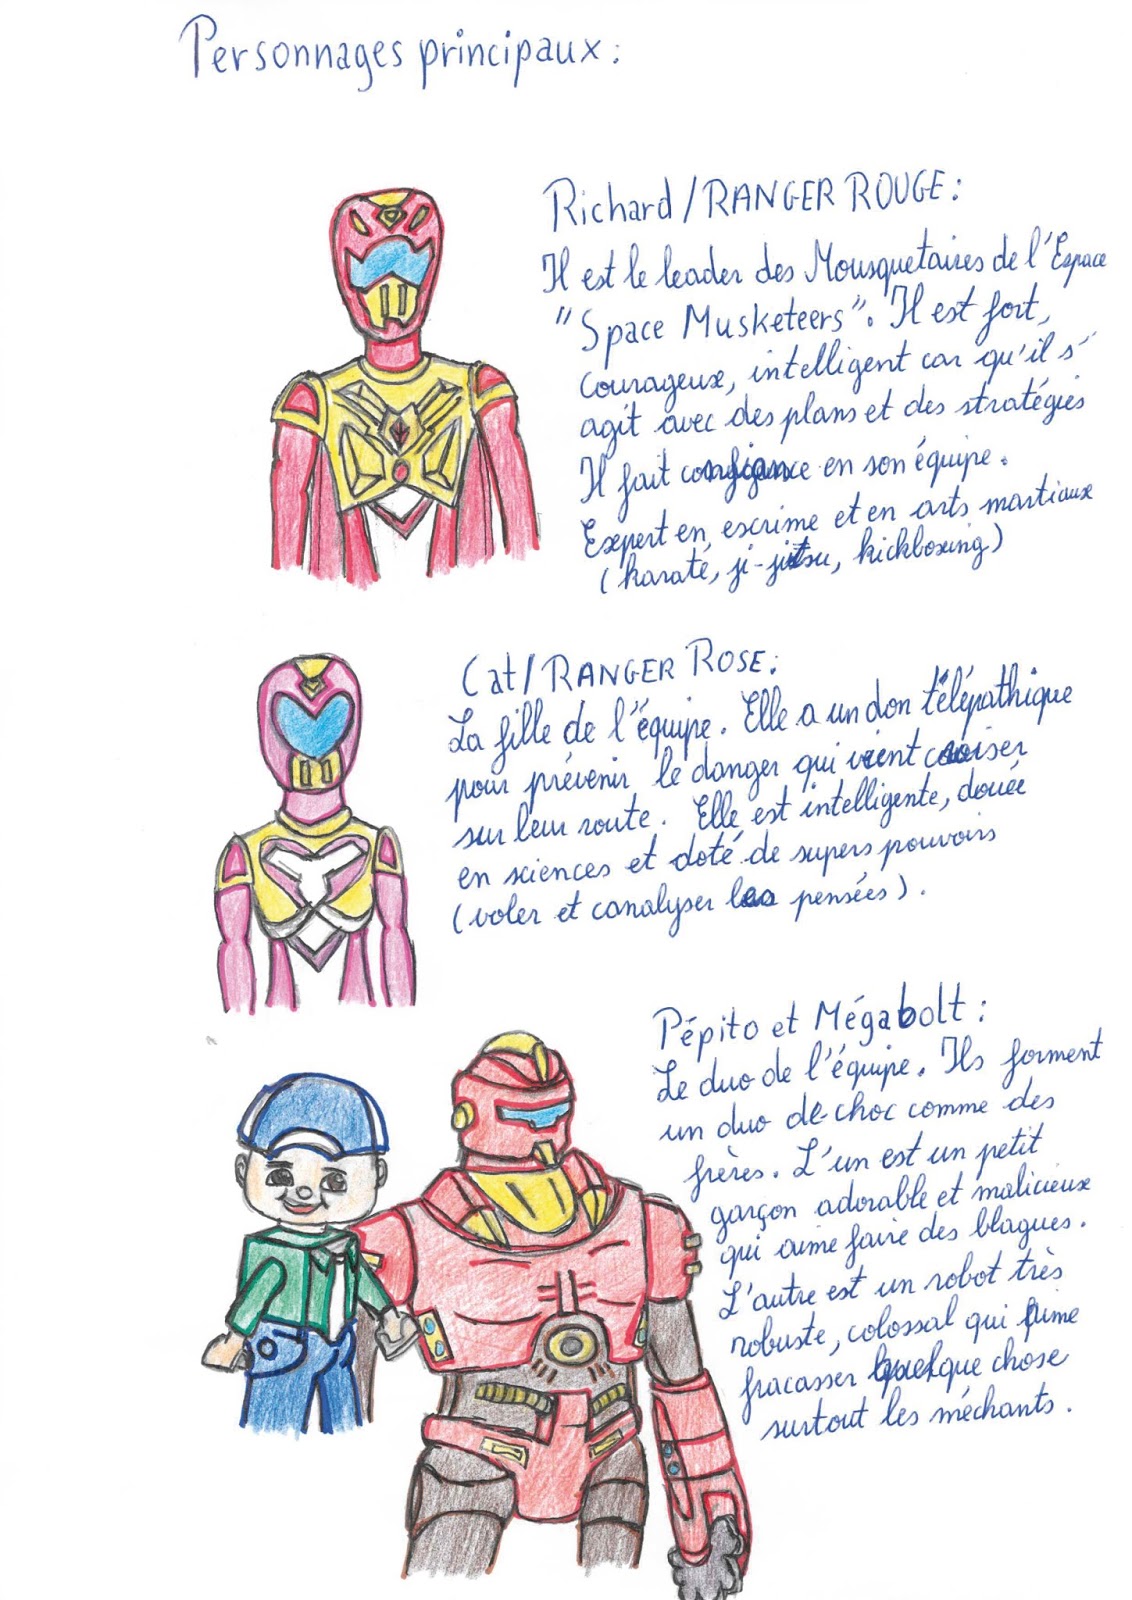 Personnages principaux :
Richard / RANGER ROUGE :
Il est le leader des Mousquetaires de l'Espace
"Space Musketeers". Il est fort,
courageux, intelligent car qu'il s'
agit avec des plans et des stratégies
Il fait confiance en son équipe.
Expert en escrime et en arts martiaux
(karaté, ji-jitsu, kickboxing)
Cat / RANGER ROSE :
La fille de l'équipe. Elle a un don télépathique
pour prévenir le danger qui vient croiser
sur leur route. Elle est intelligente, douée
en sciences et doté de supers pouvoirs
(voler et canalyser les pensées).
Pépito et Mégabolt :
Le duo de l'équipe. Ils forment
un duo de choc comme des
frères. L'un est un petit
garçon adorable et malicieux
qui aime faire des blagues.
L'autre est un robot très
robuste, colossal qui aime
fracasser quelque chose
surtout les méchants.